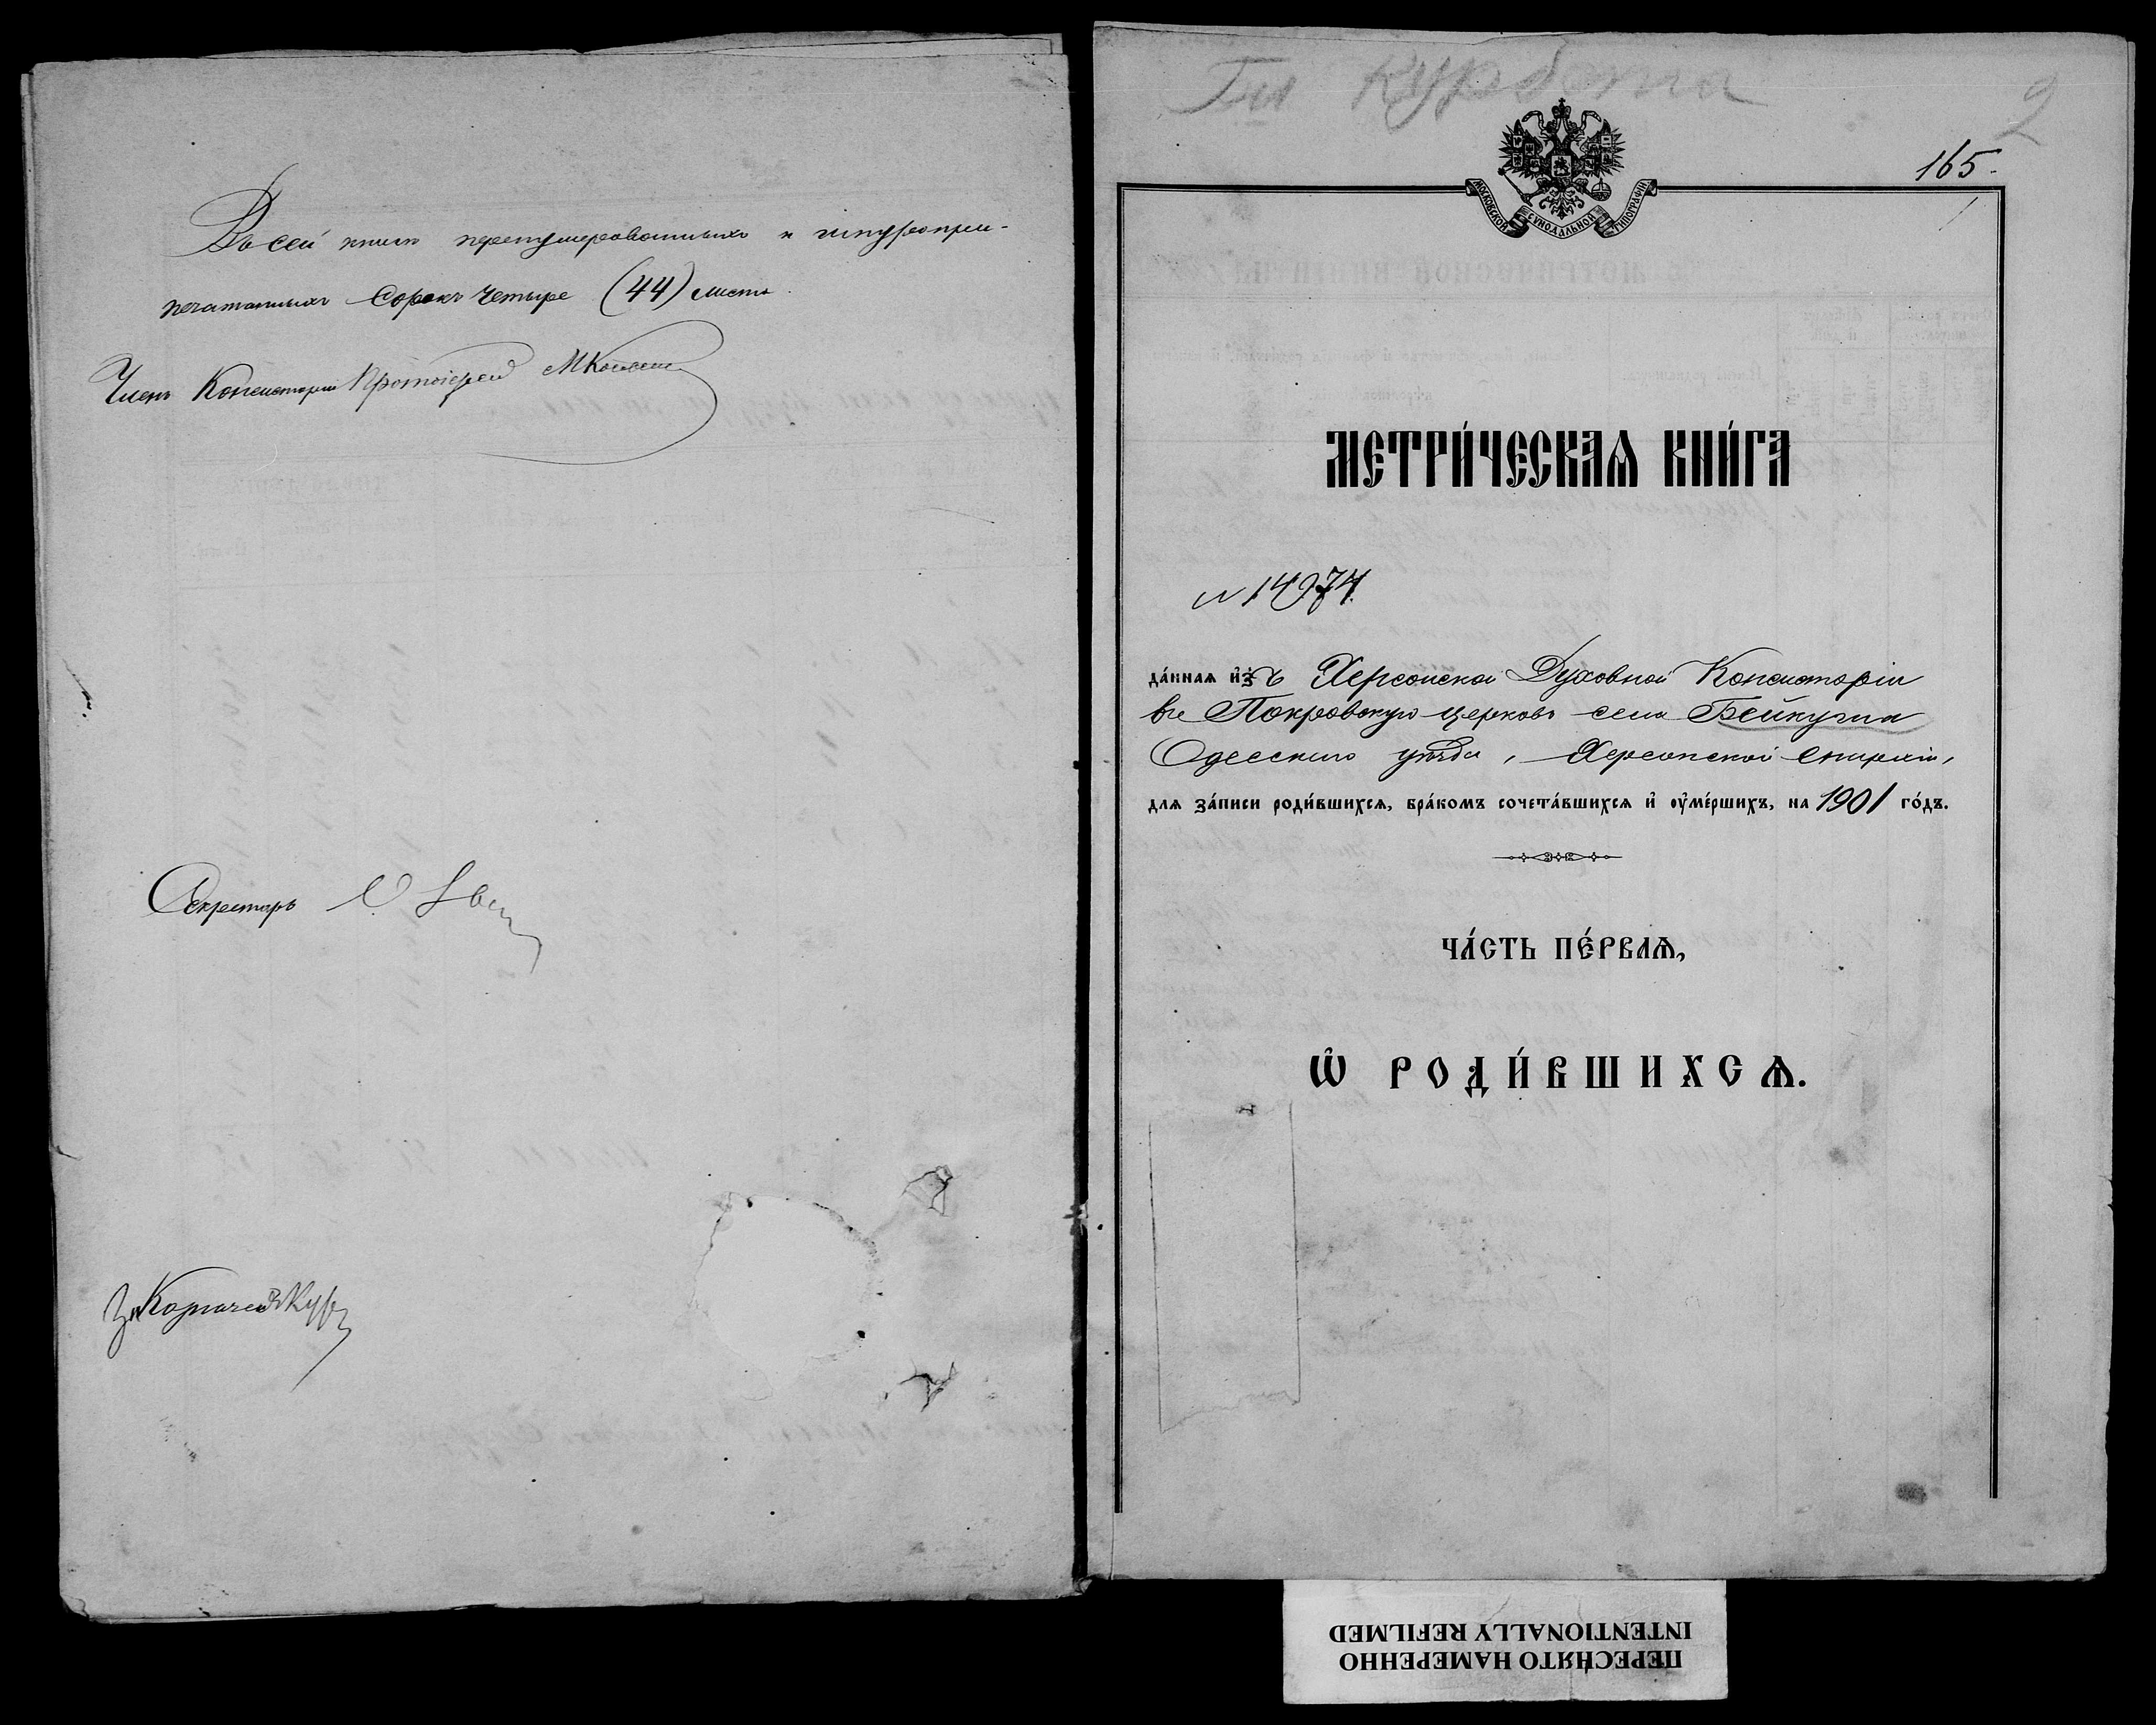 Въ сей книге перенумерованныхъ и шнуропри-
печатанныхъ Сорокъ Четыре (44) листа
Членъ Консисторіи Протоіерей М
Секретарь
Казначей
Курбета
2
165.
МОСКОВСКОЙ СѴНОДАЛЬНОЙ ТИПОГРАФІИ
МЕТРИ́ЧЕСКАѦ КНИ́ГА
№ 14974.
да́ннаѧ и҆зъ Херсонской Духовной Консисторіи
въ Покровскую церковь села Бейкуша
Одесскаго уѣзда, Херсонской епархіи,
длѧ за́писи роди́вшихсѧ, бра́комъ сочета́вшихсѧ и҆ ᲂу҆ме́ршихъ, на 1901 го́дъ.
ЧА́СТЬ ПЕ́РВАѦ,
Ѡ҆ РОДИ́ВШИХСѦ.
ПЕРЕСНЯТО НАМЕРЕННО
INTENTIONALLY REFILMED